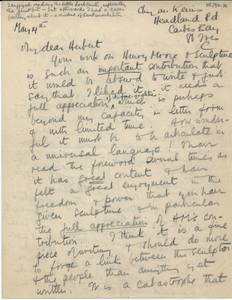 Chy an Kerris
Headland Rd
Carbis Bay
May 4th
My dear Herbert
Your work on Henry Moore & Sculpture
is such an important contribution that
it would be absurd to write & just
say that I liked it – it needs a
full appreciation which is perhaps
beyond my capacity in letter form
& with limited time. How wonder-
ful it must be to articulate in
a universal language! I have
read the foreword several times as
it has great content & have
felt a great enjoyment in the
freedom & power that you have
given sculpture – in particular
the full appreciation of HM's con-
tribution. I think it is a fine
piece of writing & should do more
to forge a link between the sculptor
& the people than anything yet
written. It is a catastrophe that